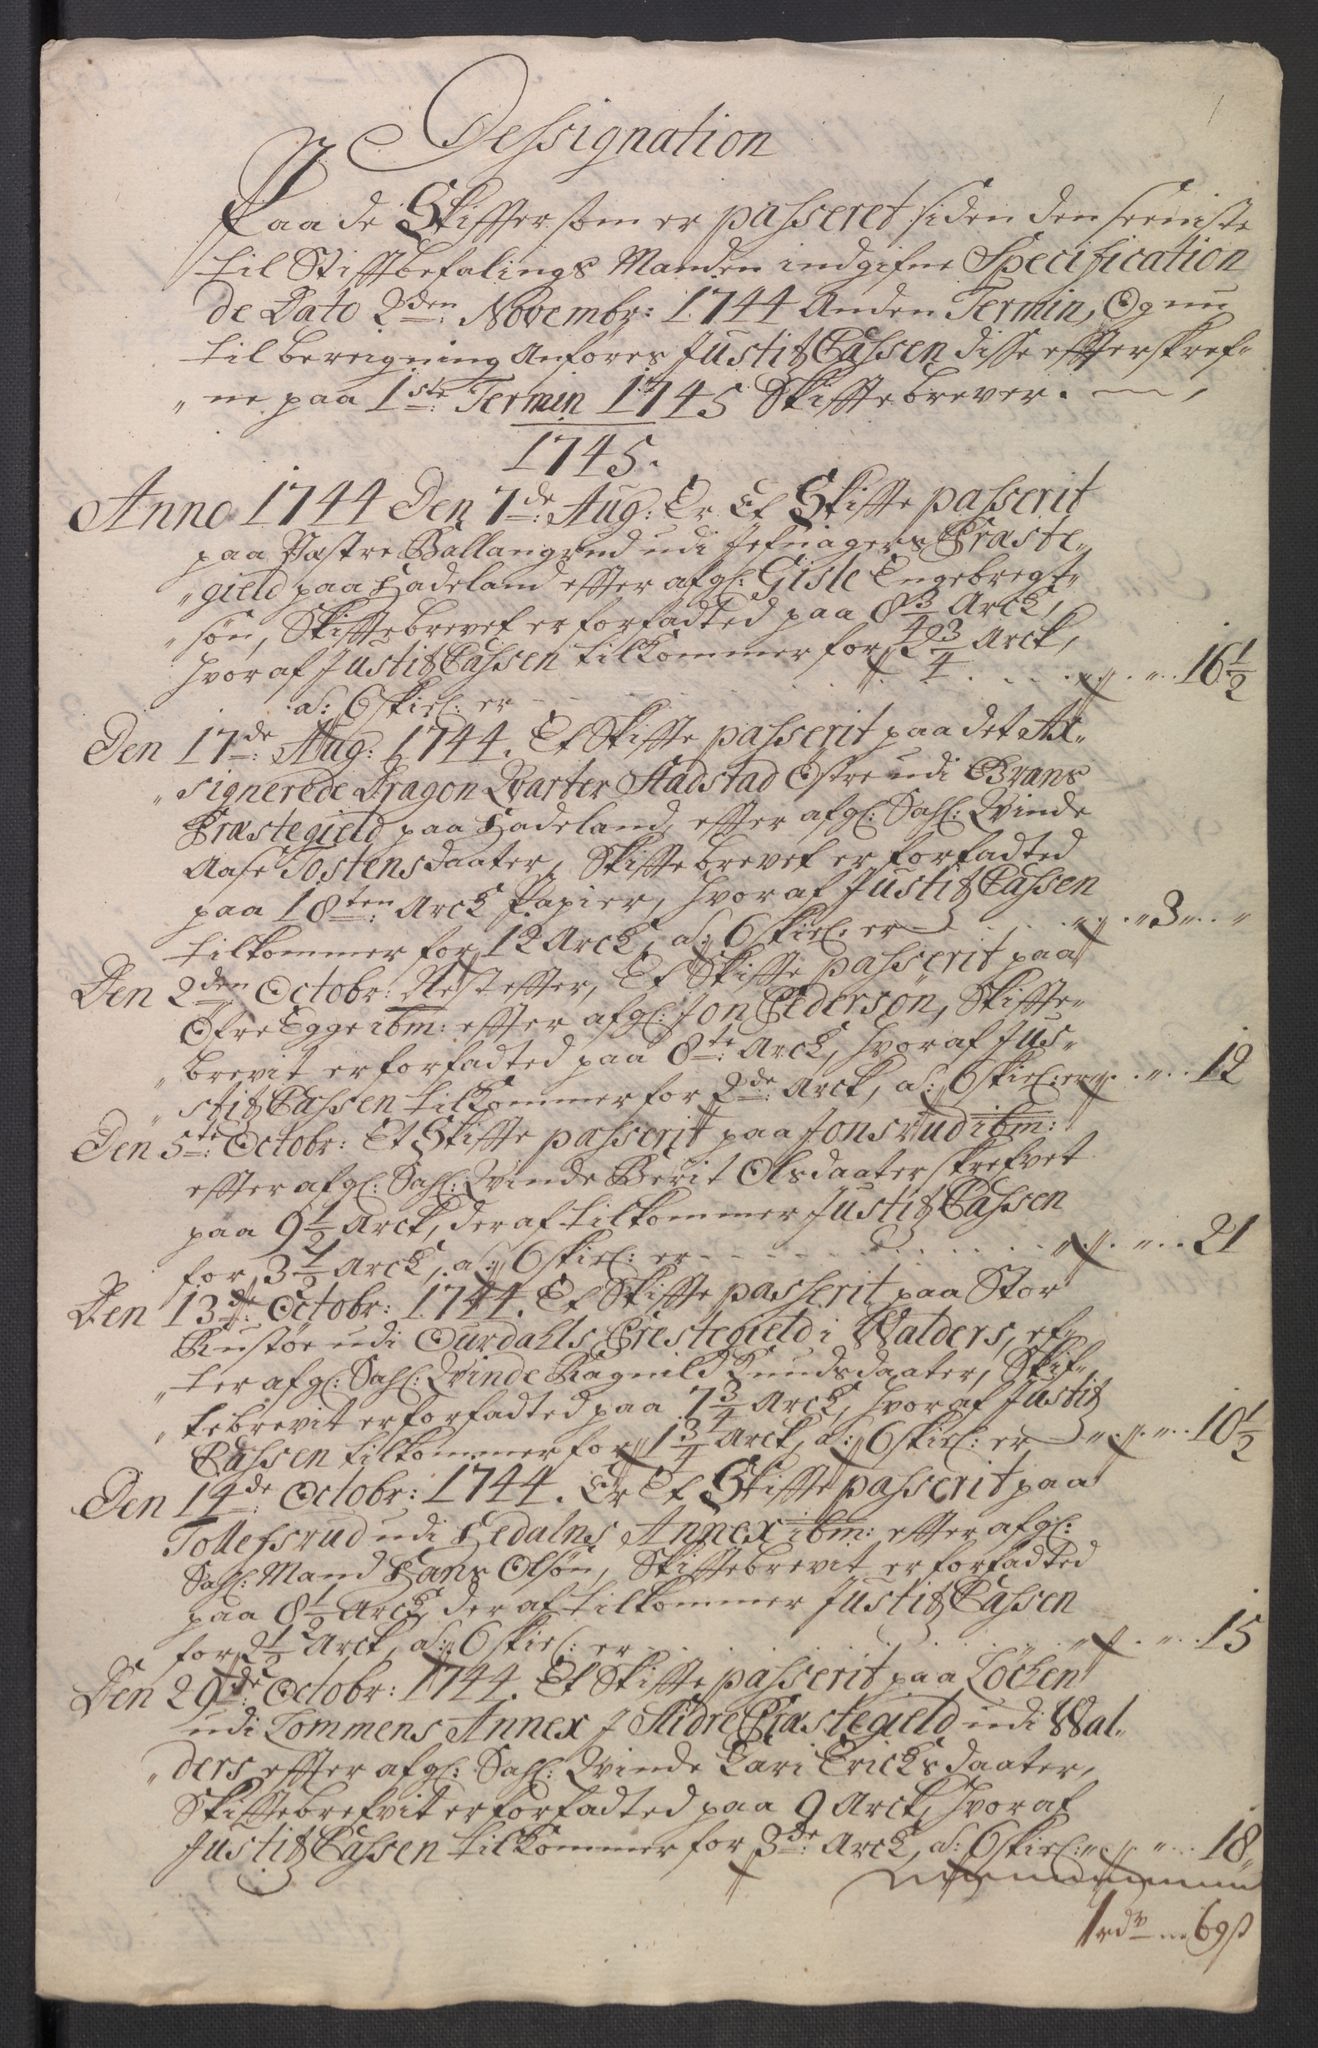 Dessignation
Paa de Skiffter som er passeret siden den seeniste
til Stiftbefalings Manden indgifne Specification
de Dato 2den Novembr: 1744 Anden Termin, Og nu
til bereigning Anføres Justitz Cassen disse effterskref-
"ne paa 1ste Termin 1745 Skifftebrever.
1745.
Anno 1744 Den 7de Aug: Er Et Skiffte passerit
paa Væstre Ballangrud udi Jefnagers Præste-
"gield paa Hadeland effter afgl: Gisle Engebregt-
"søn, Skifftebrevet er forfadted paa 8 3/4 Arck,
hvoraf Justitz Cassen tilkommer for 2 3/4 Arck,
a: 6 skiel: er - - - " " 16 1/2
Den 17de Aug: 1744. Et Skiffte passerit paa det Ax-
"signerede Dragon Qvarter Stadstad Østre udi Grans
Præstegield paa Hadeland, effter afgl: Sahl: Qvinde
Aase Tostensdaater, Skifftebrevet er forfadted
paa 18ten Arck Papier, hvoraf Justitz Cassen
tilkommer for 12 Arck, a: 6 skiel: er - " 3 " "
Den 2den Octobr: Nest effter, Et Skiffte passerit paa
Øfre Egge ibm: effter afgl: Jon Pedersøn, Skiffte-
"brevit er forfadted paa 8te Arck, hvoraf Jus-
"stitz Cassen tilkommer for 2de Arck, a: 6 skiel: er " " 12
Den 5te Octobr: Et Skiffte passerit paa Jonsrud ibm:
effter afgl: Sahl: Qvinde Berit Olsdaater skrefvet
paa 9 1/2 Arck, deraf tilkommer Justitz Cassen
for 3 1/2 Arck, a: 6 skiel: er - - - " " 21
Den 13de Octobr: 1744. Et Skiffte passerit paa Stor
Rustøe udi Ourdahls Prestegield i Walders, ef-
"ter afgl: Sahl: Qvinde Ragnild Knudsdaater, Skif-
"tebrevit er forfadted paa 7 3/4 Arck, hvoraf Justitz
Cassen tilkommer for 1 3/4 Arck, a: 6 skiel: er - " " 10 1/2
Den 14de Octobr: 1744. Er Et Skiffte passerit paa
Tollefsrud udi Hedalns Annex ibm: effter afgl:
Sahl: Mand Hans Olsøn, Skifftebrevit er forfadted
paa 8 1/2 Arck, deraf tilkommer Justitz Cassen
for 2 1/2 Arck, a: 6 skiel: er - - - " " 15
Den 29de Octobr: 1744. Et Skiffte passerit paa Løcken
udi Lommens Annex J Slidre Præstegield udi Wal-
"ders effter afgl: Sahl: Qvinde Kari Ericksdaater,
Skifftebrefvit er forfadted paa 9 Arck, hvoraf
Justitz Cassen tilkommer for 3de Arck, a: 6 skiel: " " 18
1 rdr 69 ß